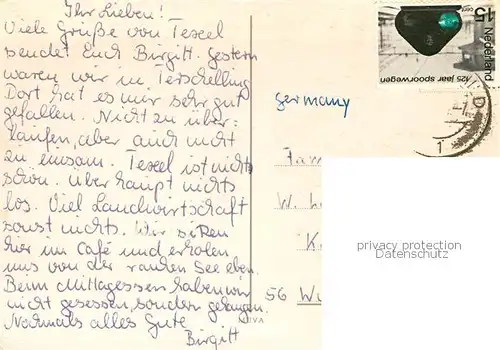 Ihr Lieben!
Viele Grüße von Texel
sendet Euch Birgitt. Gestern
waren wir in Terschelling
Dort hat es mir sehr gut
gefallen. Nicht zu über-
laufen, aber auch nicht
zu einsam. Texel ist nicht
schön. Überhaupt nichts
los. Viel Landwirtschaft
sonst nichts. Wir sitzen
hier im Café und erholen
uns von der rauhen See eben.
Beim Mittagessen haben wir
nicht gesessen, sondern gehangen.
Nochmals alles Gute
Birgitt
15
cent
Nederland
125 jaar spoorwegen
germany
Fam
W. L
K
56 Wu
privacy protection
Datenschutz